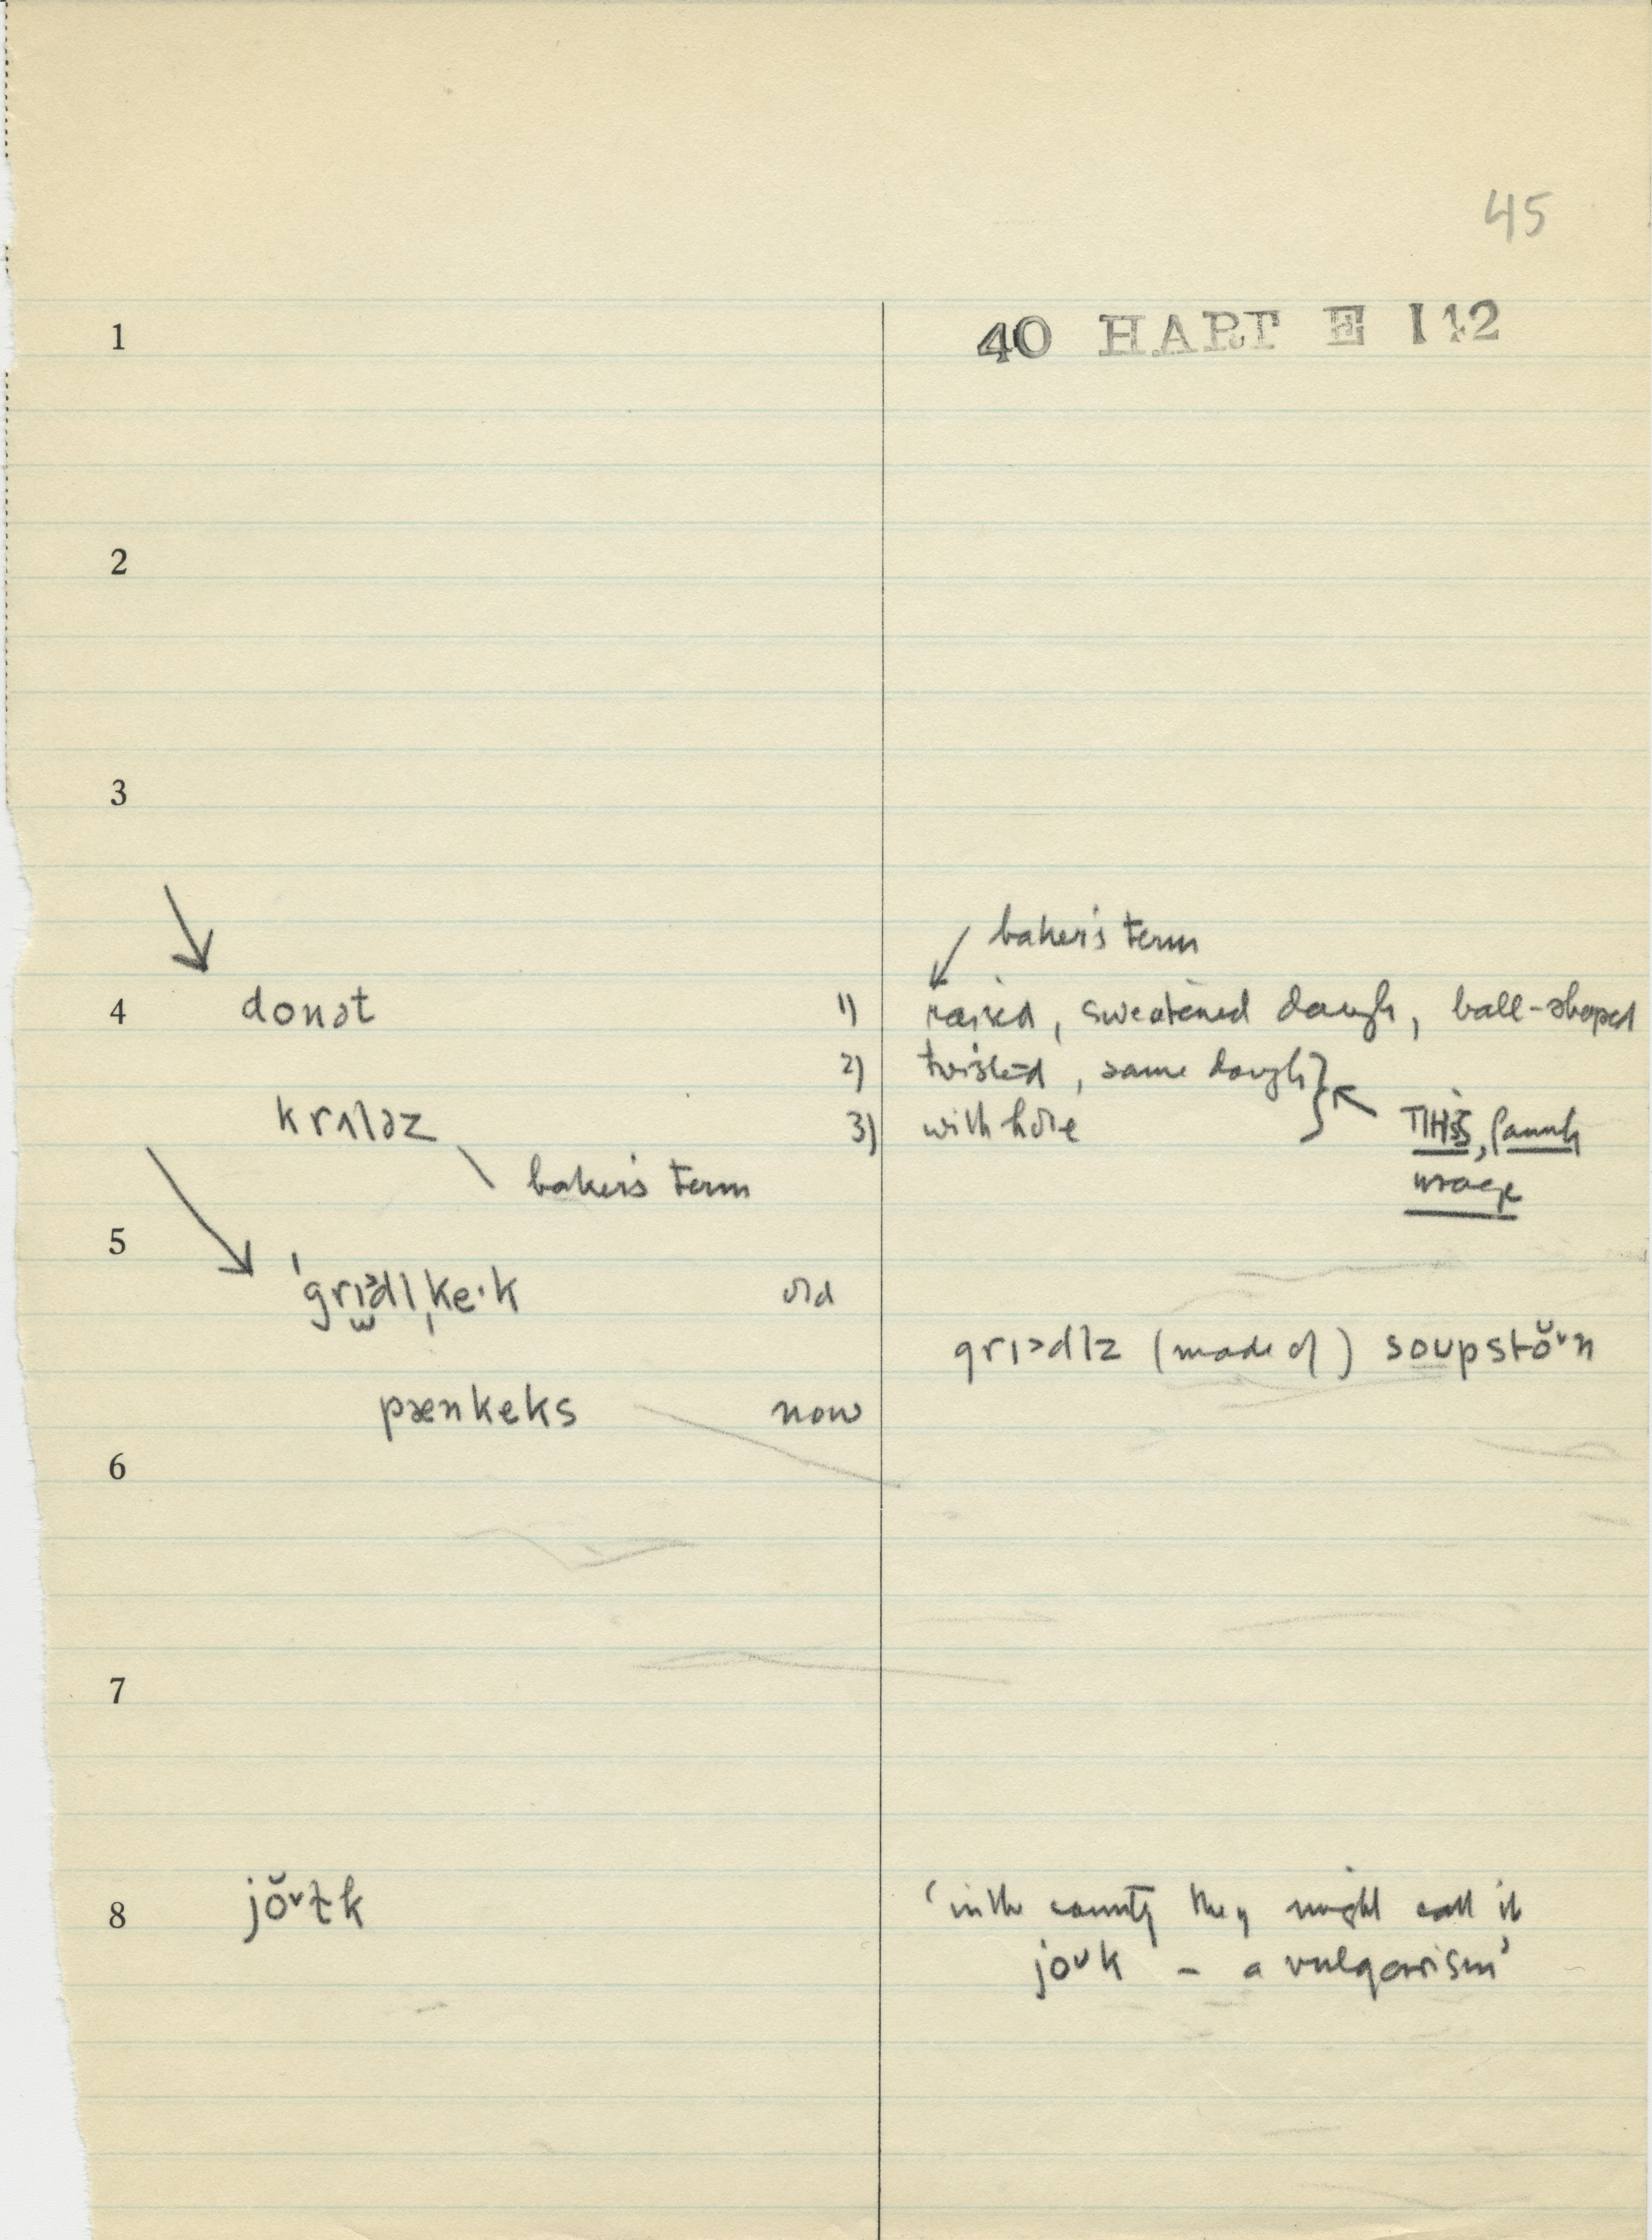 45
1 40 HART E 112
2
3
baker's term
4 donət 1) raised, sweetened dough, ball-shaped
2) twisted, same dough
krʌləz 3) with hole
THIS, family
baker's term usage
5
ˈgrɪᵊdlˌke·k old
grɪᵊdlz (made of) soupstŏᶷn
pænkeks now
6
7
8 jŏᶷlk 'in the county they might call it
joᶷk – a vulgarism'